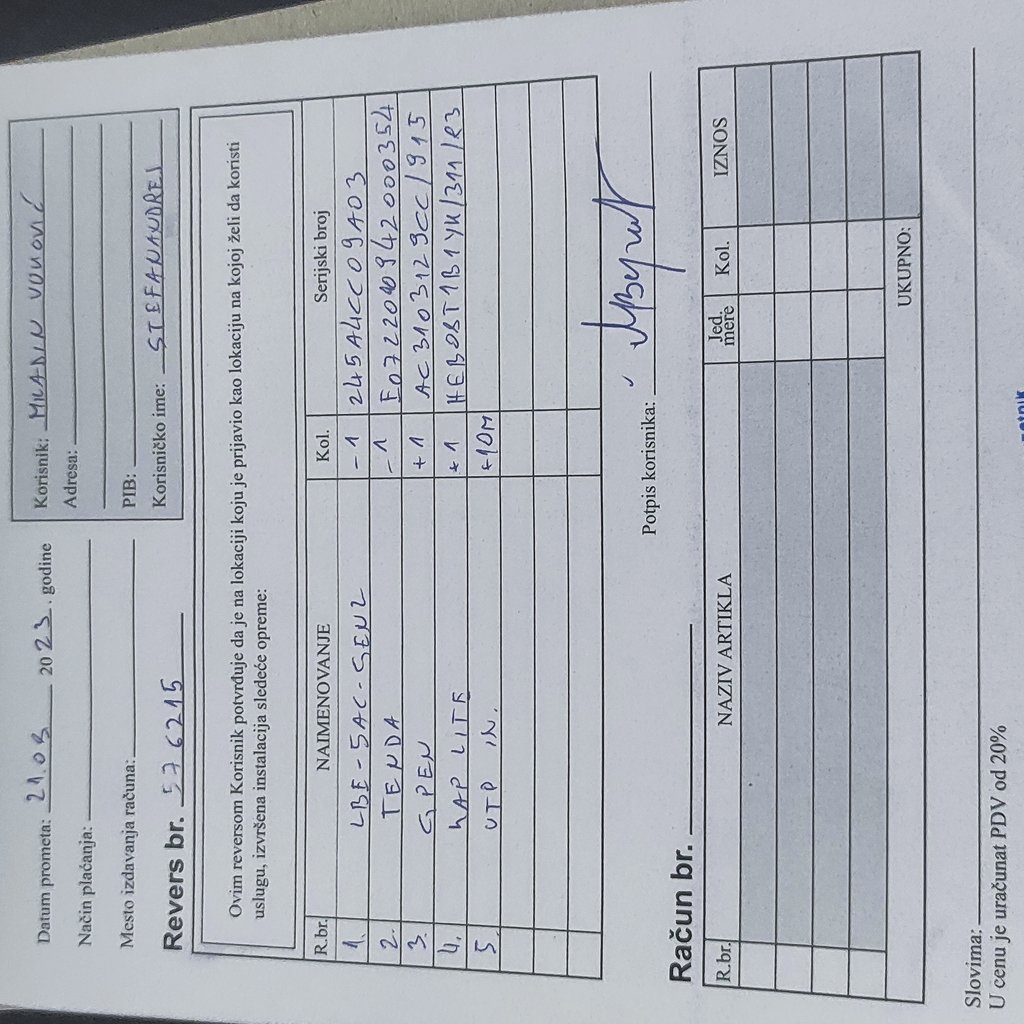 Datum prometa: 21.09 2023. godine
Način plaćanja:
Mesto izdavanja računa:
Revers br. 576215
Korisnik: MILADIN VUKOVIĆ
Adresa:
PIB:
Korisničko ime: STEFANANDREJ
Ovim reversom Korisnik potvrđuje da je na lokaciji koju je prijavio kao lokaciju na kojoj želi da koristi
uslugu, izvršena instalacija sledeće opreme:
R.br. NAIMENOVANJE Kol. Serijski broj
1. LBE-5AC-GEN2 -1 245A4CC09A03
2. TENDA -1 E0722010942000354
3. GPEN +1 AC3103129CC/915
4. HAP LITE +1 HEB08T1B1YK/311/R3
5. UTP IN. +10M
Potpis korisnika:
Račun br.
R.br. NAZIV ARTIKLA Jed. mere Kol. IZNOS
UKUPNO:
Slovima:
U cenu je uračunat PDV od 20%